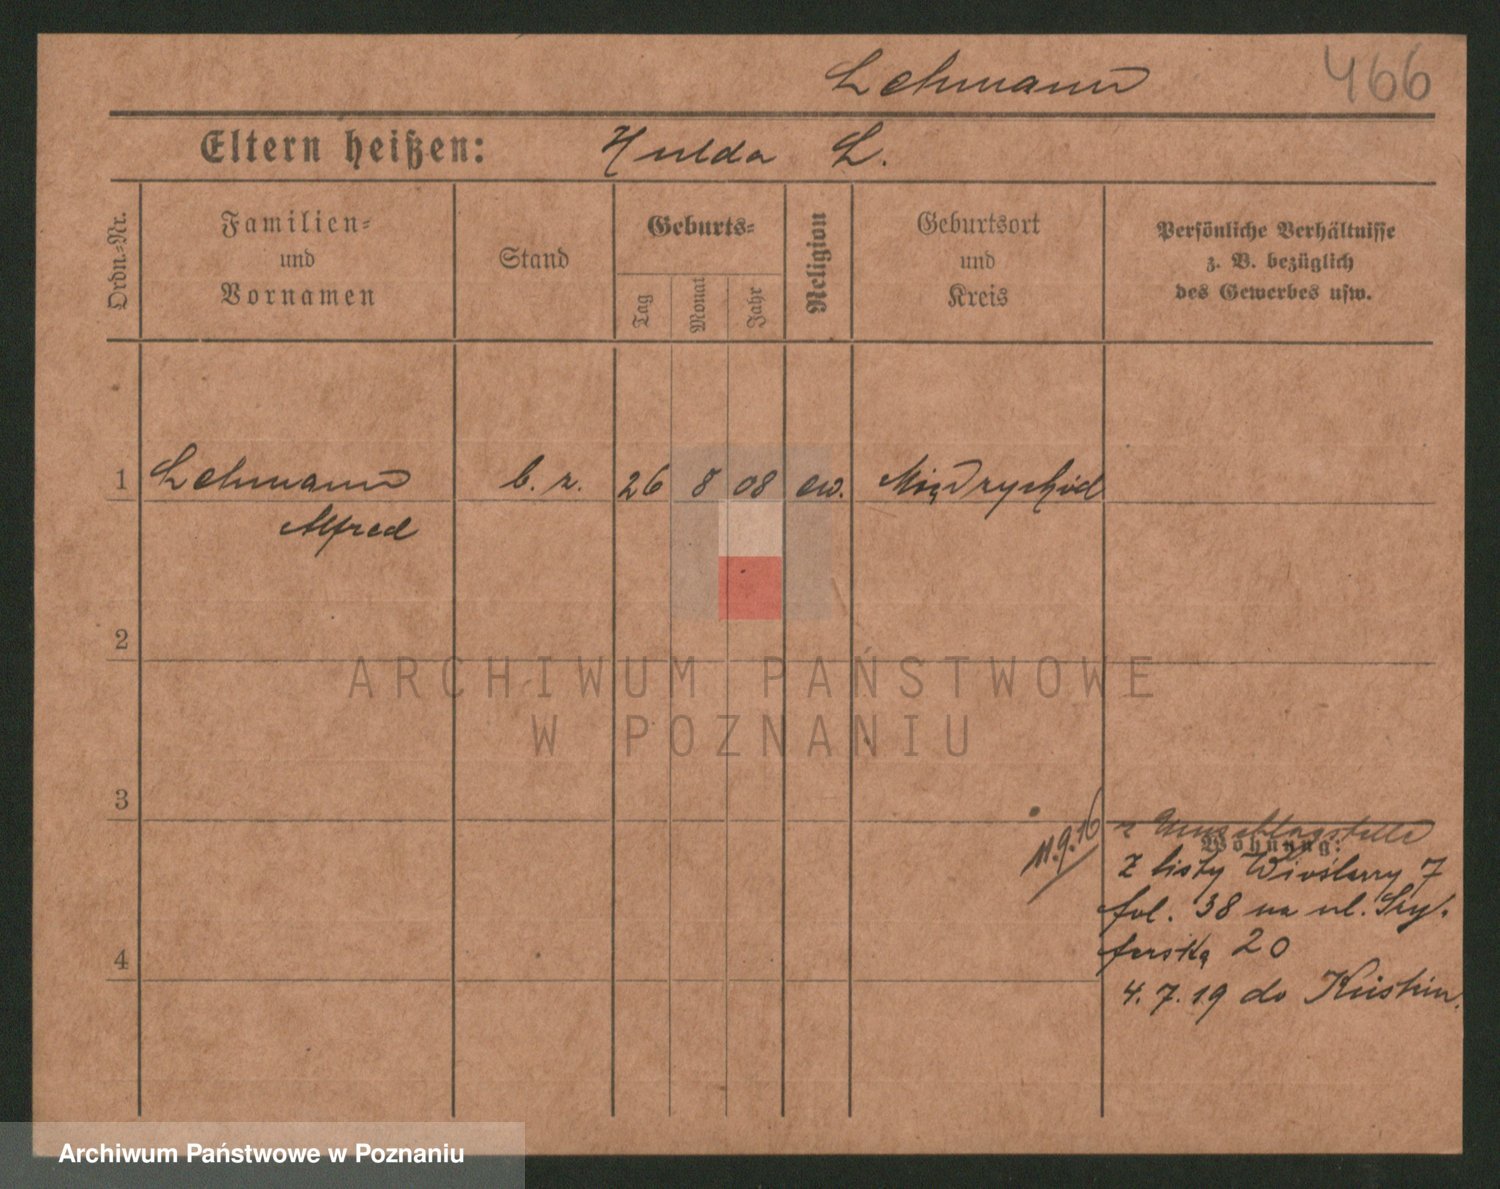 Lehmann 466
Eltern heißen: Hulda L.
Ordn.-Nr.
Familien-
und
Vornamen
Stand
Geburts-
Tag
Monat
Jahr
Religion
Geburtsort
und
Kreis
Persönliche Verhältnisse
z. B. bezüglich
des Gewerbes usw.
1 Lehmann b. z. 26 8 08 ew. Międzychód
Alfred
2
3
4
11.9.16
Wohnung:
z listy 7
fol. 38 na ul. Szy-
ferską 20
4.7.19 do Küstrin.
ARCHIWUM PAŃSTWOWE
W POZNANIU
Archiwum Państwowe w Poznaniu